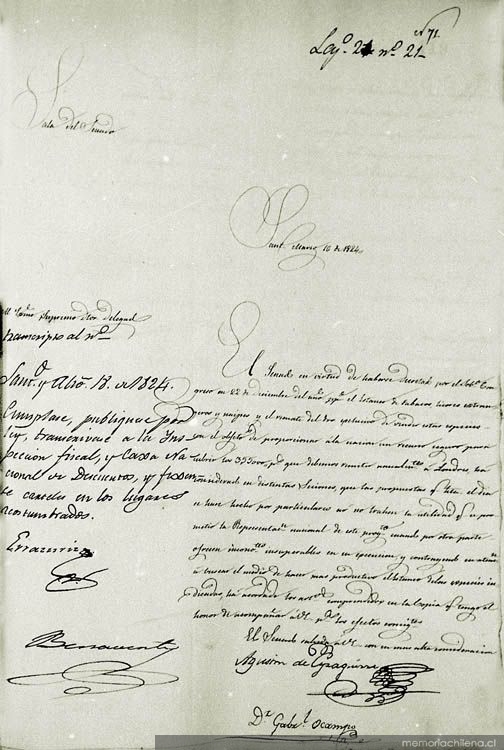 Nº 71.
Leg.º 2º nº 21
Sala del Senado
Sant. Marzo 10 de 1824.
Al Exmo Supremo Dtor Delegad
transcripto al nº
Sant.º y Abril 18. de 1824.
Cumplase, publiquese por
ley, transcrivase a la Ins
peccion fiscal, y Caxa Na
cional de Descuentos, y fixen
se carteles en los lugares
acostumbrados.
Errazuriz
Benavente
El Senado en virtud de haberse decretado por el Sob.º Con
greso en 22 de diciembre del año pp.º el Estanco de tabacos, licores extran
geros y naipes y el remate del dro exclusivo de vender estas especies
con el objeto de proporcionar a la nacion un recurso seguro para
cubrir los 355000 p.s que debemos remitir anualm.te a Londres, ha
considerado en distintas Sesiones, que las propuestas q.e hta. el dia
se han hecho por particulares no traben la utilidad q.e se pro
metio la Representac.n nacional de este proy.to cuando por otra parte
ofrecen inconv.tes insuperables en su execucion, y contrayendo su atenc.n
a buscar el medio de hacer mas productivo el Estanco de las especies in
dicadas, ha acordado los art.s comprendidos en la Copia q.e tengo el
honor de acompañar a V.E. p.a los efectos consig.tes
El Senado saluda a V.E. con su mas alta consideracion
Agustin de Eyzaguirre
Dr. Gab.l Ocampo
Srio
memoriachilena.cl